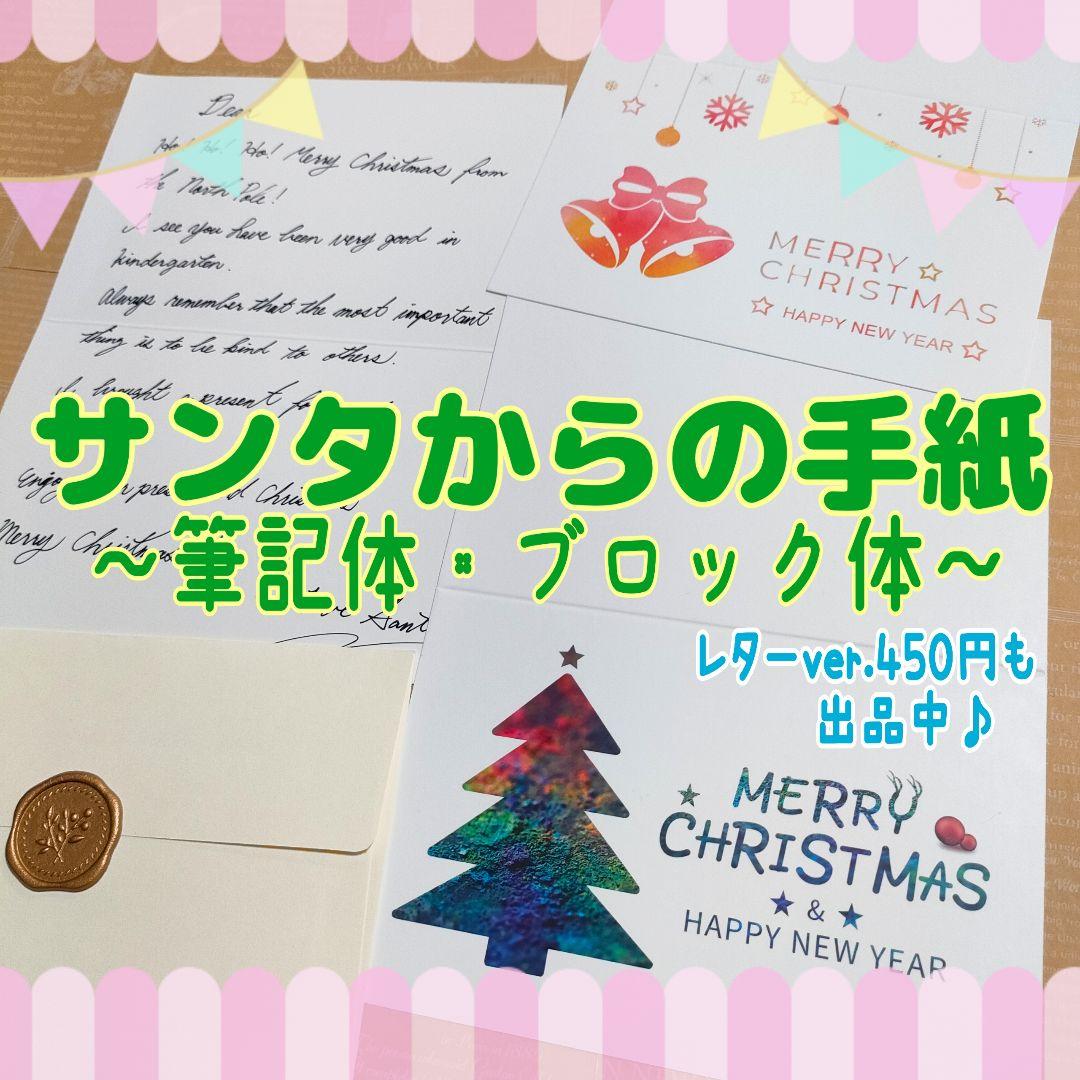 Dear
Ho! Ho! Ho! Merry Christmas from
the North Pole!
I see you have been very good in
kindergarten.
Always remember that the most important
thing is to be kind to others.
brought a present
Enjoy
Merry Christmas
MERRY
CHRISTMAS
HAPPY NEW YEAR
サンタからの手紙
~筆記体・ブロック体~
レターver.450円も
出品中♪
MERRY
CHRISTMAS
&
HAPPY NEW YEAR